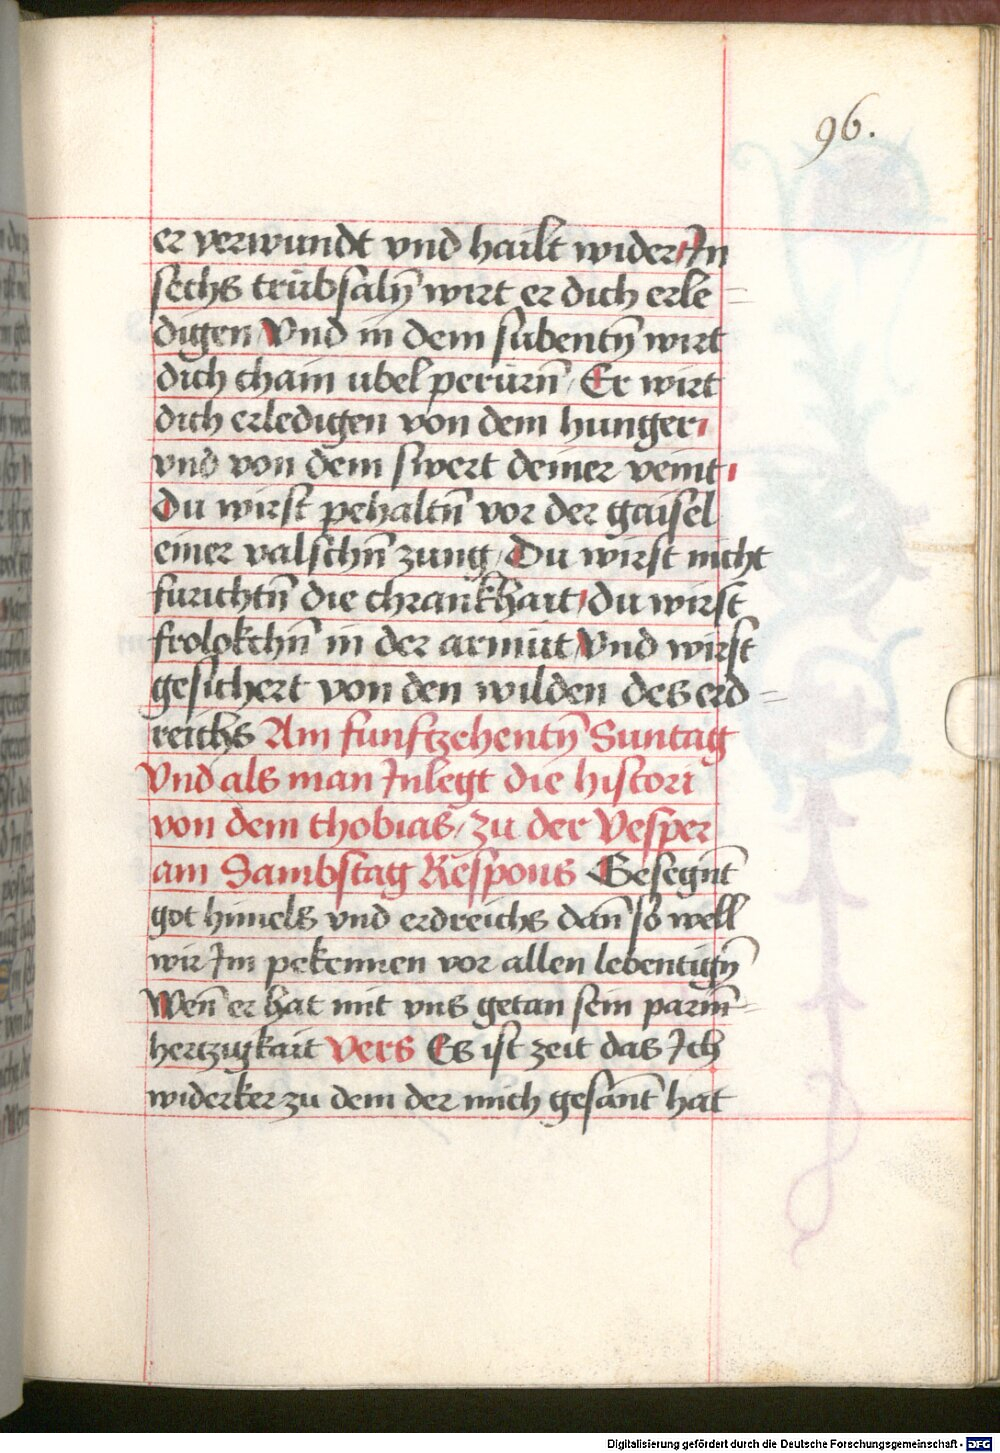 96.
er verwundt vnd hailt wider In
sechs trübsaln̄ wirt er dich erle=
digen Vnd in dem sübentn̄ wirt
dich chain ubel perürn̄ / Er wirt
dich erledigen von dem hunger /
vnd von dem swert deiner veint /
Du wirst pehaltn̄ vor der gaisel
einer valschn̄ zung / Du wirst nicht
fürichtn̄ die chrankhait / du wirst
frolokchn̄ in der armüt / Vnd wirst
gesichert von den wilden des erd=
reichs Am funftzehentn̄ Suntag
Vnd als man Inlegt die histori
von dem thobias / zu der Vesper
am Sambstag Respons Gesegnt̄
got himels vnd erdreichs dan̄ so well
wir Im pekennen vor allen lebentign̄
Wen̄ er hat mit vns getan sein parm̄=
hertzigkait Vers Es ist zeit das Ich
widerker zu dem der mich gesān̄t hat
Digitalisierung gefördert durch die Deutsche Forschungsgemeinschaft - DFG